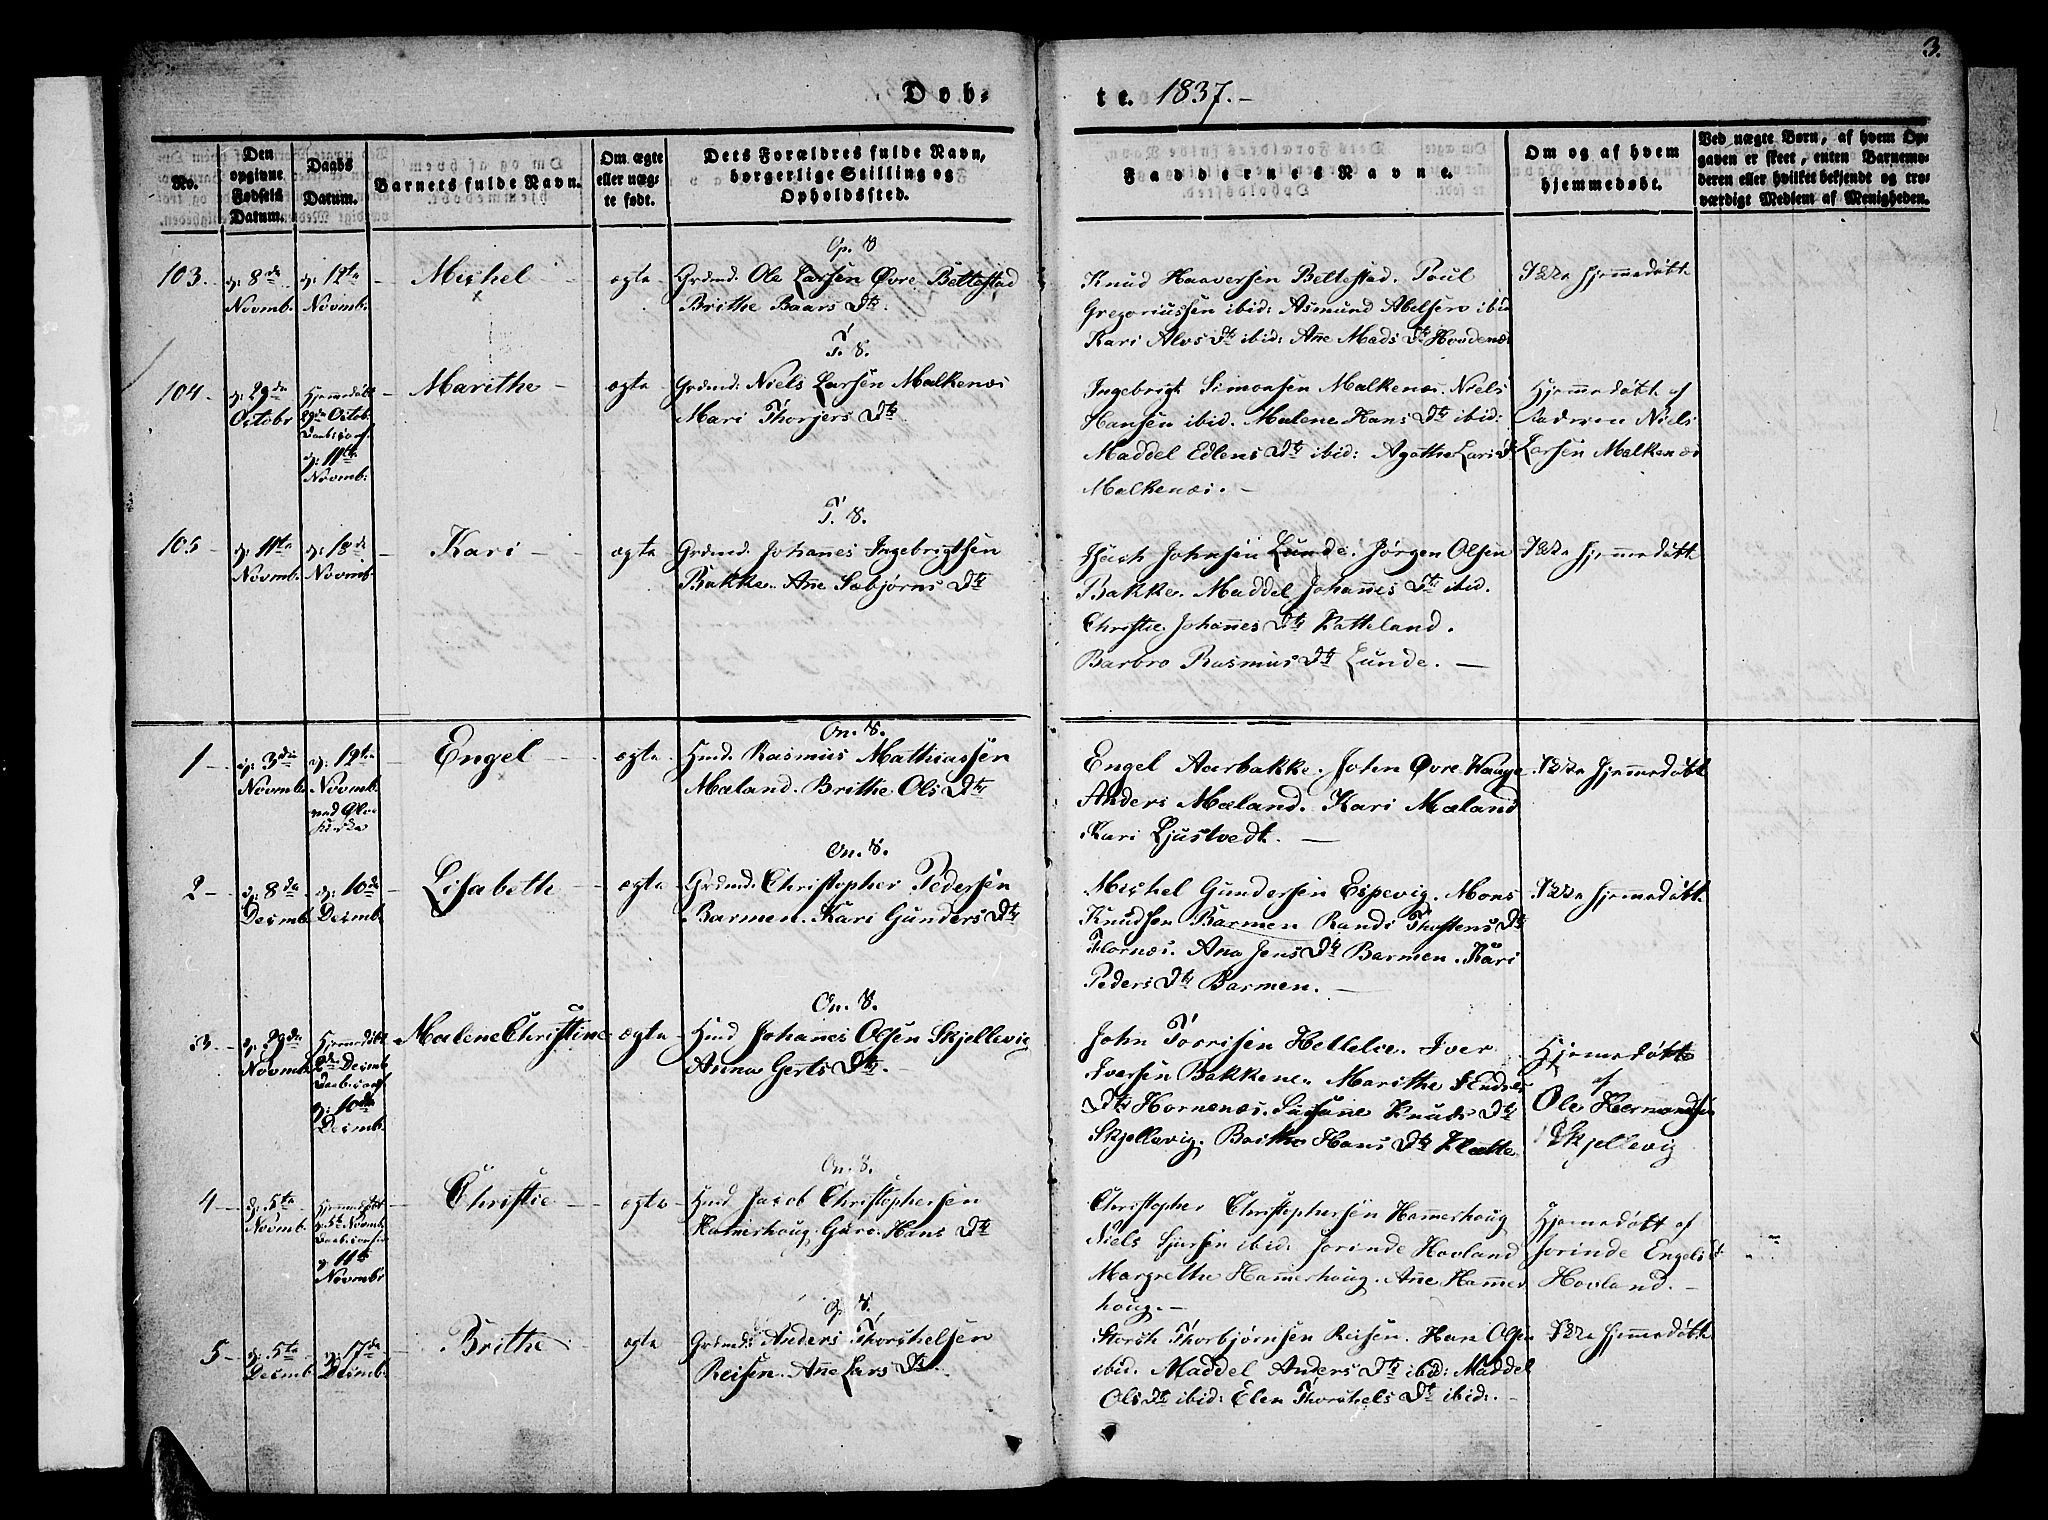 3.
Døb-
te. 1837.-
No.
Den opgivne Fødsels Datum.
Daabs Datum.
Barnets fulde Navn.
Om ægte eller uæg-te født.
Dets Forældres fulde Navn, borgerlige Stilling og Opholdssted.
Faddernes Navne.
Om og af hvem hjemmedøbt.
Ved uægte Børn, af hvem Op-gaven er skeet, enten Barnemo-deren eller hvilket bekjendt og tro-værdigt Medlem af Menigheden.
Op. S
103. d: 8de Novmb. d: 12te Novmb: Michel ægte
Grdmd: Ole Larsen Øvre Bettestad
Brithe Baars Dtr
Knud Haaversen Bettestad. Poul
Gregoriussen ibid: Asmund Abelsero ibid
Kari Alvs Dtr ibid: Ane Mads Dtr Hovdenæs
Ikke hjemmedøbt
T. S.
104 - d: 29de Octobr Hjemmedøbt 29de Octob: d: 11te Novmb: Marithe - ægte
Grdmd: Niels Larsen Malkenæs
Mari Thorgers Dtr
Ingebrigt Simonsen Malkenæs. Niels
Hansen ibid. Malene Hans Dtr ibid:
Maddel Edlens Dtr ibid: Agathe Lars D
Malkenæs. -
Hjemmedøbt af
Faderen Niels
Larsen Malkenæs
T. S.
105 - d: 11te Novmb: d: 18de Novmb. - Kari - ægte
Grdmd. Johanes Ingebrigtsen
Bakke. Ane Sæbjørns Dtr
Isach Johnsen Lunde. Jørgen Olsen
Bakke. Maddel Johannes Dtr ibid.
Christie Johannes Dtr Ratteland.
Barbro Rasmus Dtr Lunde. -
Ikke hjemmedøbt
On. S.
1 - d: 3die Novmb d: 12te Novmb: Engel - ægte
Hmd. Rasmus Mathiassen
Mæland. Brithe Ols Dtr
Engel Aarbakke. John Øvre Wauge
Anders Mæland. Kari Mæland
Kari Ljustvedt. -
Ikke hjemmedøbt
On. S.
2 - d: 8de Decmb. d: 10de Decmb. - Lisabeth - ægte
Grdmd. Christopher Pedersen
Barmen. Kari Gunders Dtr
Michel Gundersen Espevig. Mons
Knudsen Barmen Randi Thostens Dtr
Flornæs. Ana Jens Dtr Barmen. Kari
Peders Dtr Barmen. -
Ikke hjemmedøbt
On. S.
3 - d: 29de Novmb Hjemmedøbt Decmb d: 10de Decmb. Malene Christine ægte -
Hmd Johannes Olsen Skjellevig
Anna Gerts Dtr. -
John Torrisen Hellelve. Iver
Iversen Bakkene. Marithe Endres
Dtr Hornenæs. Susane Knuds Dtr
Skjellevig. Brithe Hans Dtr Klætte
Hjemedøbt
af
Ole Hermandsen
Skjellevig
On. S.
4 - d: 5te Novmb. Hjemmedøbt d: 5te Novmb d: 11te Novmbr - Christie - ægte
Hmd Jacob Christophersen
Hamerhoug. Guro Hans Dtr
Christopher Christophersen Hammerhoug
Niels Sjursen ibid: Jorinde Hovland
Margrethe Hammerhoug. Ane Hammer
houg. -
Hjemedøbt af
Jorinde Engels Dt
Hovland. -
Op S.
5 - d: 5te Decmb. d: 17de Decmb. Brithe ægte
Grdmd: Anders Thorchelsen
Reisen. Ane Lars Dtr. -
Storch Thorbjørnsen Reisen. Hans Olsen
ibid. Maddel Anders Dtr ibid: Maddel
Ols Dtr ibid: Elen Thorchels Dtr ibid: -
Ikke hjemmedøbt